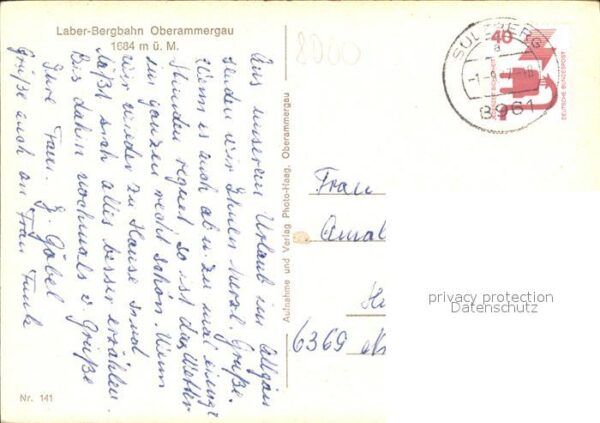 Laber-Bergbahn Oberammergau
1684 m ü. M.
8000
Aus unserem Urlaub im Allgäu
senden wir Ihnen herzl. Grüße.
Wenn es auch ab u. zu mal einige
Stunden regnet so ist das Wetter
im ganzen recht schön. Wenn
wir wieder zu Hause sind
läßt sich alles besser erzählen.
Bis dahin nochmals Grüße
Ihre Fam. G. Göbel
Grüße auch an Frau Funk
Nr. 141
Aufnahme und Verlag Photo-Haag, Oberammergau
SULZBERG
a
8961
40
DEUTSCHE BUNDESPOST
Frau
Amal
6369
privacy protection
Datenschutz